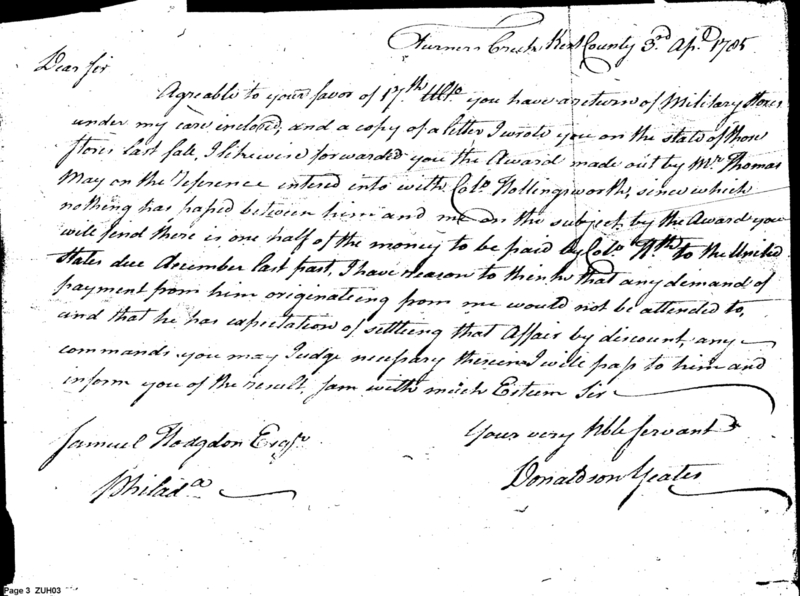 Turners Creek Kent County 3rd Apl 1785
Dear Sir
Agreable to your favor of 17th Ulto you have a return of Military Stores
under my care inclosed, and a copy of a letter I wrote you on the state of those
stores last fall, I likewise forwarded you the Award made out by Mr Thomas
May on the reference entered into with Colo Hollingsworth, since which
nothing has passed between him and me on the subject, by the Award you
will find there is one half of the money to be paid by Colo Hth to the United
States due december last past, I have reason to think that any demand of
payment from him originateing from me would not be attended to,
and that he has expectation of settling that Affair by discount, any
commands you may Judge necessary therein I will pass to him and
inform you of the result, I am with much Esteem Sir
Your very Hble servant
Samuel Hodgdon Esqr
Donaldson Yeates
Philada
Page 3 ZUH03